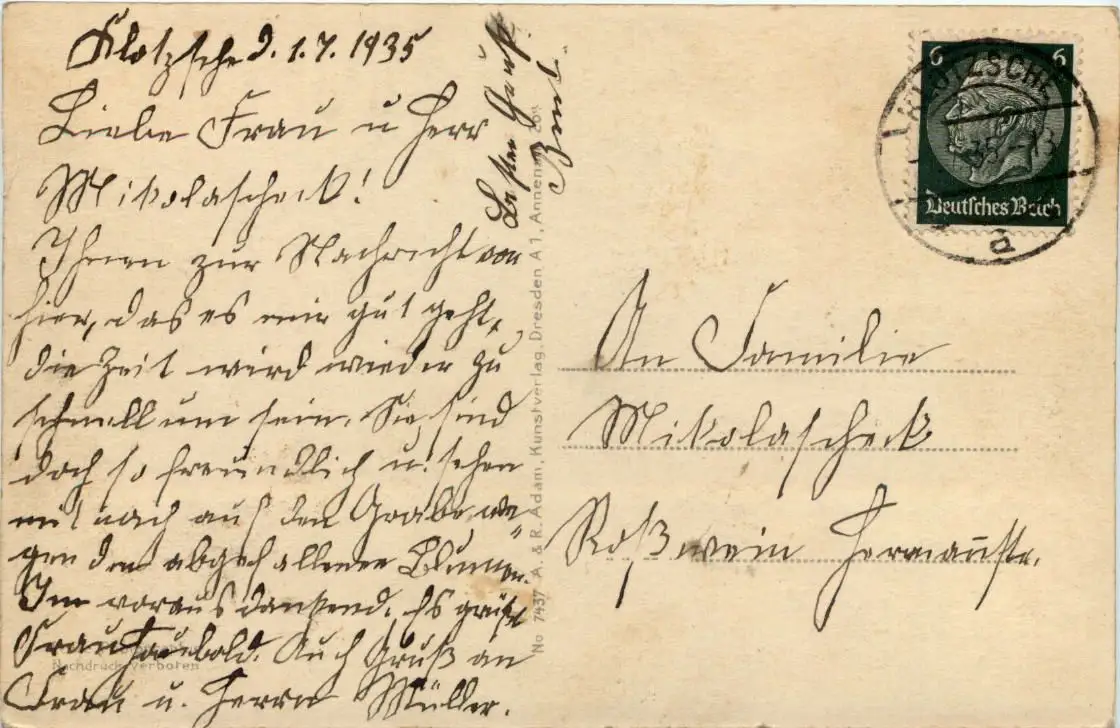 Klotzsche d. 1.7.1935
Liebe Frau u Herr
Mikolascheck!
Ihnen zur Nachricht von
hier, das es mir gut geht,
die Zeit wird wieder zu
schnell um sein. Sie sind
doch so freundlich u. sehen
mit nach auf den Grabe we-
gen den abgefallenen Blumen.
Im voraus dankend. Es grüßt
Frau Haubold. Auch Gruß an
Frau u. Herrn Müller.
Besten Gruß
An Familie
Mikolascheck
Roßwein Hermannstr.
No 7437 A. & R. Adam, Kunstverlag, Dresden A 1, Annenstr.
Nachdruck verboten
6 6
Deutsches Reich
KLOTZSCHE
35 - 13
d